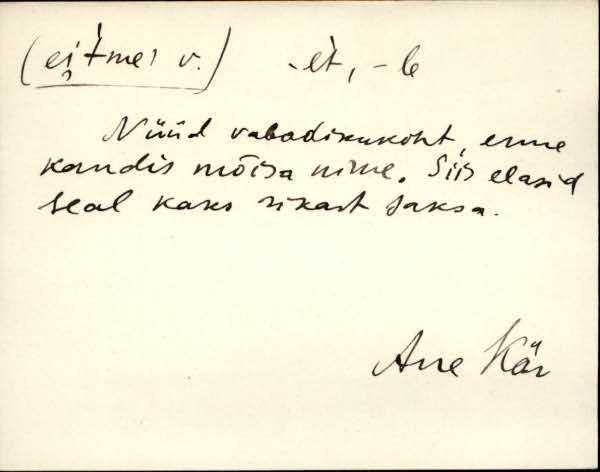 (ei̯tmeˈ v.) -èt, -le
Nüüd vabadikukoht, enne
kandis mõisa nime. Siis elasid
seal kaks rikast saksa.
Arve Kär